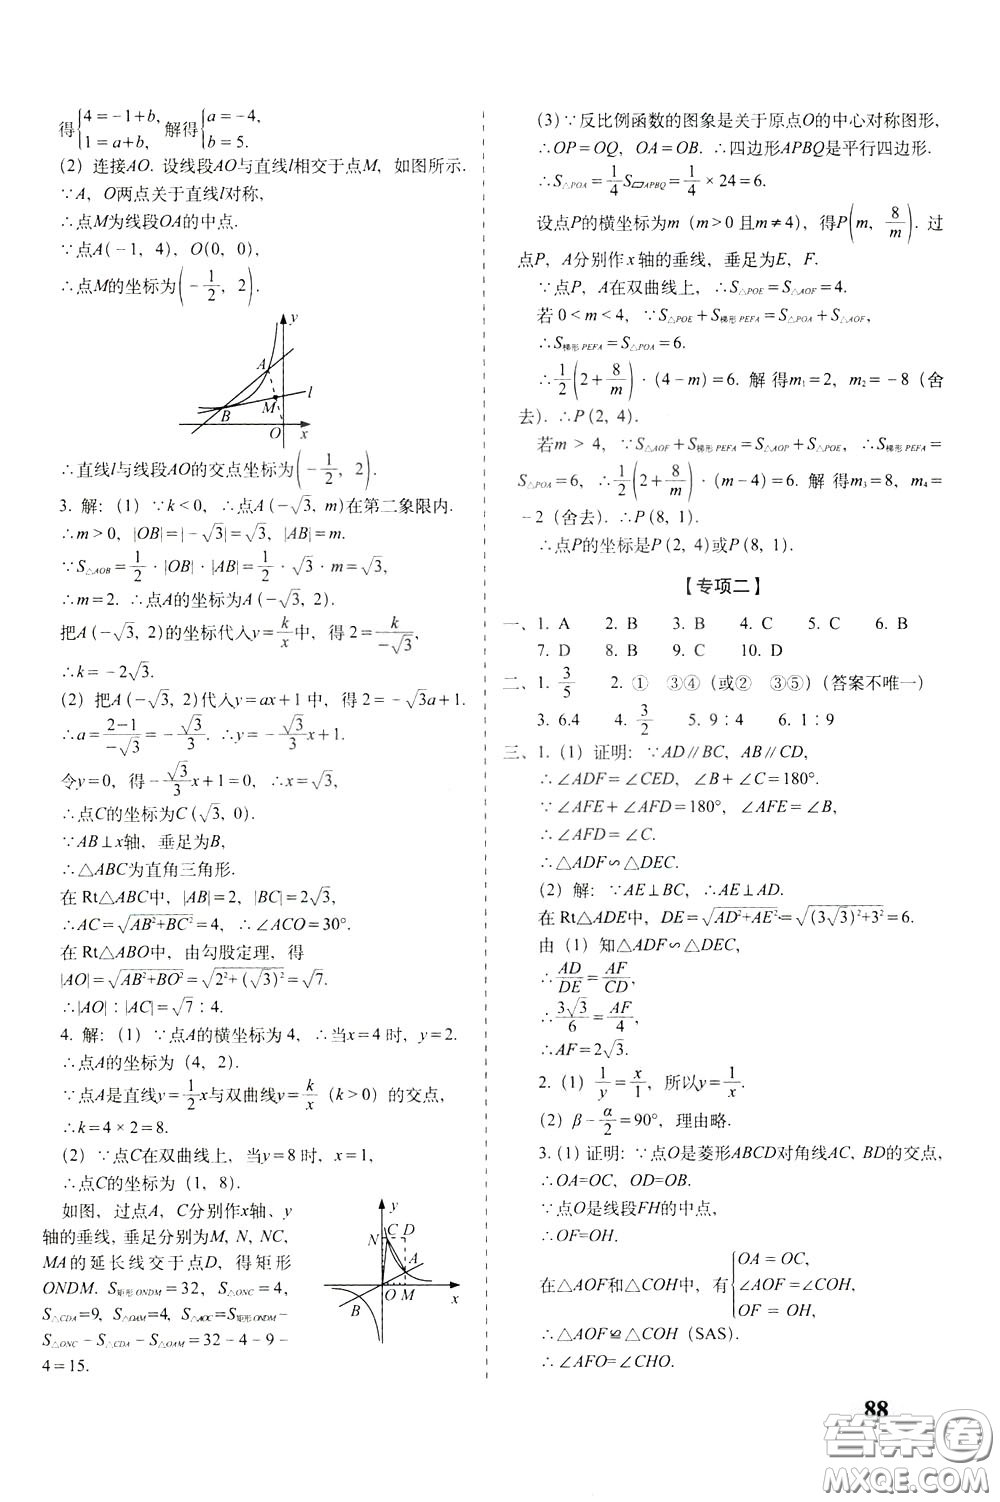 得{4=-1+b, 1=a+b, 解得{a=-4, b=5.
(2) 连接AO. 设线段AO与直线l相交于点M, 如图所示.
∵A, O两点关于直线l对称,
∴点M为线段OA的中点.
∵点A(-1, 4), O(0, 0),
∴点M的坐标为(-1/2, 2).
y
A
M
l
B
O
x
∴直线l与线段AO的交点坐标为(-1/2, 2).
3. 解: (1) ∵k<0, ∴点A(-√3, m)在第二象限内.
∴m>0, |OB|=|-√3|=√3, |AB|=m.
∵S△AOB=1/2·|OB|·|AB|=1/2·√3·m=√3,
∴m=2. ∴点A的坐标为A(-√3, 2).
把A(-√3, 2)的坐标代入y=k/x中, 得2=k/-√3,
∴k=-2√3.
(2) 把A(-√3, 2)代入y=ax+1中, 得2=-√3a+1.
∴a=2-1/-√3=-√3/3. ∴y=-√3/3x+1.
令y=0, 得-√3/3x+1=0, ∴x=√3.
∴点C的坐标为C(√3, 0).
∵AB⊥x轴, 垂足为B,
∴△ABC为直角三角形.
在Rt△ABC中, |AB|=2, |BC|=2√3,
∴AC=√AB²+BC²=4, ∴∠ACO=30°.
在Rt△ABO中, 由勾股定理, 得
|AO|=√AB²+BO²=√2²+(√3)²=√7.
∴|AO|∶|AC|=√7∶4.
4. 解: (1) ∵点A的横坐标为4, ∴当x=4时, y=2.
∴点A的坐标为(4, 2).
∵点A是直线y=1/2x与双曲线y=k/x(k>0)的交点,
∴k=4×2=8.
(2) ∵点C在双曲线上, 当y=8时, x=1,
∴点C的坐标为(1, 8).
如图, 过点A, C分别作x轴、y
轴的垂线, 垂足分别为M, N, NC,
MA的延长线交于点D, 得矩形
ONDM. S矩形ONDM=32, S△ONC=4,
S△CDA=9, S△OAM=4, S△AOC=S矩形ONDM-
S△ONC-S△CDA-S△OAM=32-4-9-
4=15.
y
N
C
D
A
O
M
x
B
(3) ∵反比例函数的图象是关于原点O的中心对称图形,
∴OP=OQ, OA=OB. ∴四边形APBQ是平行四边形.
∴S△POA=1/4S▱APBQ=1/4×24=6.
设点P的横坐标为m(m>0且m≠4), 得P(m, 8/m). 过
点P, A分别作x轴的垂线, 垂足为E, F.
∵点P, A在双曲线上, ∴S△POE=S△AOF=4.
若0<m<4, ∵S△POE+S梯形PEFA=S△POA+S△AOF,
∴S梯形PEFA=S△POA=6.
∴1/2(2+8/m)·(4-m)=6. 解得m₁=2, m₂=-8(舍
去). ∴P(2, 4).
若m>4, ∵S△AOF+S梯形PEFA=S△AOP+S△POE, ∴S梯形PEFA=
S△POA=6, ∴1/2(2+8/m)·(m-4)=6. 解得m₃=8, m₄=
-2(舍去). ∴P(8, 1).
∴点P的坐标是P(2, 4)或P(8, 1).
【专项二】
一、1. A 2. B 3. B 4. C 5. C 6. B
7. D 8. B 9. C 10. D
二、1. 3/5 2. ① ③④(或② ③⑤)(答案不唯一)
3. 6.4 4. 3/2 5. 9∶4 6. 1∶9
三、1. (1) 证明: ∵AD∥BC, AB∥CD,
∴∠ADF=∠CED, ∠B+∠C=180°.
∵∠AFE+∠AFD=180°, ∠AFE=∠B,
∴∠AFD=∠C.
∴△ADF∽△DEC.
(2) 解: ∵AE⊥BC, ∴AE⊥AD.
在Rt△ADE中, DE=√AD²+AE²=√(3√3)²+3²=6.
由(1)知△ADF∽△DEC,
∴AD/DE=AF/CD,
∴3√3/6=AF/4,
∴AF=2√3.
2. (1) 1/y=x/1, 所以y=1/x.
(2) β-α/2=90°, 理由略.
3. (1) 证明: ∵点O是菱形ABCD对角线AC, BD的交点,
∴OA=OC, OD=OB.
∵点O是线段FH的中点,
∴OF=OH.
在△AOF和△COH中, 有{OA=OC, ∠AOF=∠COH, OF=OH,
∴△AOF≌△COH(SAS).
∴∠AFO=∠CHO.
88
答案圈
MXQE.COM